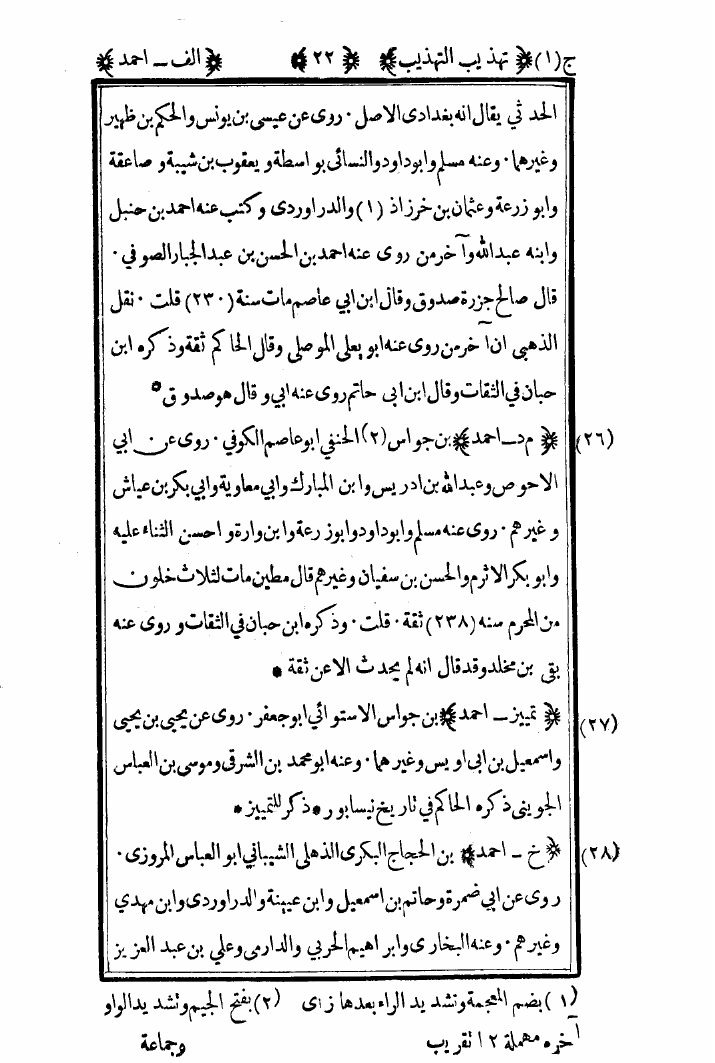 ج(١) ﴿ تهذيب التهذيب ﴾ ﴿ ٢٢ ﴾ ﴿ الف ـ احمد ﴾
الحدثي يقال انه بغدادى الاصل ٠ روى عن عيسى بن يونس والحكم بن ظهير
وغيرهما ٠ وعنه مسلم وابوداود والنسائى بواسطة ويعقوب بن شيبة وصاعقة
وابو زرعة وعثمان بن خرزاذ (١) والدراوردى وكتب عنه احمد بن حنبل
وابنه عبدالله وآخر من روى عنه احمد بن الحسن بن عبدالجبار الصوفي ٠
قال صالح جزرة صدوق وقال ابن ابي عاصم مات سنة (٢٣٠) قلت ٠ نقل
الذهبى ان آخر من روى عنه ابو يعلى الموصلى وقال الحاكم ثقة وذكره ابن
حبان في الثقات وقال ابن ابى حاتم روى عنه ابي وقال هو صدوق *
(٢٦) ﴿ م د ـ احمد ﴾ بن جواس (٢) الحنفي ابوعاصم الكوفي ٠ روى عن ابي
الاحوص وعبدالله بن ادريس وابن المبارك وابي معاوية وابي بكر بن عياش
وغيرهم ٠ روى عنه مسلم وابوداود وابوزرعة وابن وارة واحسن الثناء عليه
وابو بكر الاثرم والحسن بن سفيان وغيرهم قال مطين مات لثلاث خلون
من المحرم سنه (٢٣٨) ثقة ٠ قلت ٠ وذكره ابن حبان في الثقات وروى عنه
بقى بن مخلد وقد قال انه لم يحدث الا عن ثقة *
(٢٧) ﴿ تمييز ـ احمد ﴾ بن جواس الاستوائي ابوجعفر ٠ روى عن يحيى بن يحيى
واسمعيل بن ابى اويس وغيرهما ٠ وعنه ابومحمد بن الشرقى وموسى بن العباس
الجوينى ذكره الحاكم في تاريخ نيسابور * ذكر للتمييز *
(٢٨) ﴿ خ ـ احمد ﴾ بن الحجاج البكرى الذهلى الشيباني ابو العباس المروزى ٠
روى عن ابي ضمرة وحاتم بن اسمعيل وابن عيينة والدراوردى وابن مهدي
وغيرهم ٠ وعنه البخارى وابراهيم الحربي والدارمى وعلي بن عبد العزيز
(١) بضم المعجمة وتشديد الراء بعدها زاى (٢) بفتح الجيم وتشديد الواو
آخره مهملة ١٢ تقريب وجماعة